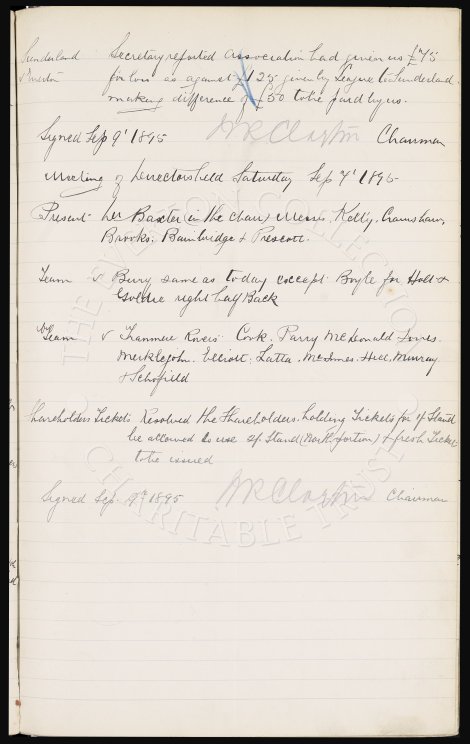 Sunderland Secretary reported association had given us £75
& Preston for loss as against £125 given by League to Sunderland
making difference of £50 to be paid by us.
Signed Sep 9' 1895 WR Clayton Chairman
Meeting of Directors held Saturday Sep 7' 1895
Present Mr Baxter (in the chair) Messrs. Kelly, Cranshaw,
Brooks, Bainbridge & Prescott.
Team v Bury same as today except Boyle for Holt &
Goldie right half Back
Team v Tranmere Rovers Cork, Parry McDonald Jones
Meiklejohn, Elliott, Latta, McInnes, Hill, Murray
& Schofield
Shareholders Tickets Resolved the Shareholders holding Tickets for Stand
be allowed to use Stand & fresh Ticket
to be issued
Signed Sep. 1895 WR Clayton Chairman
THE EVERTON COLLECTION
CHARITABLE TRUST